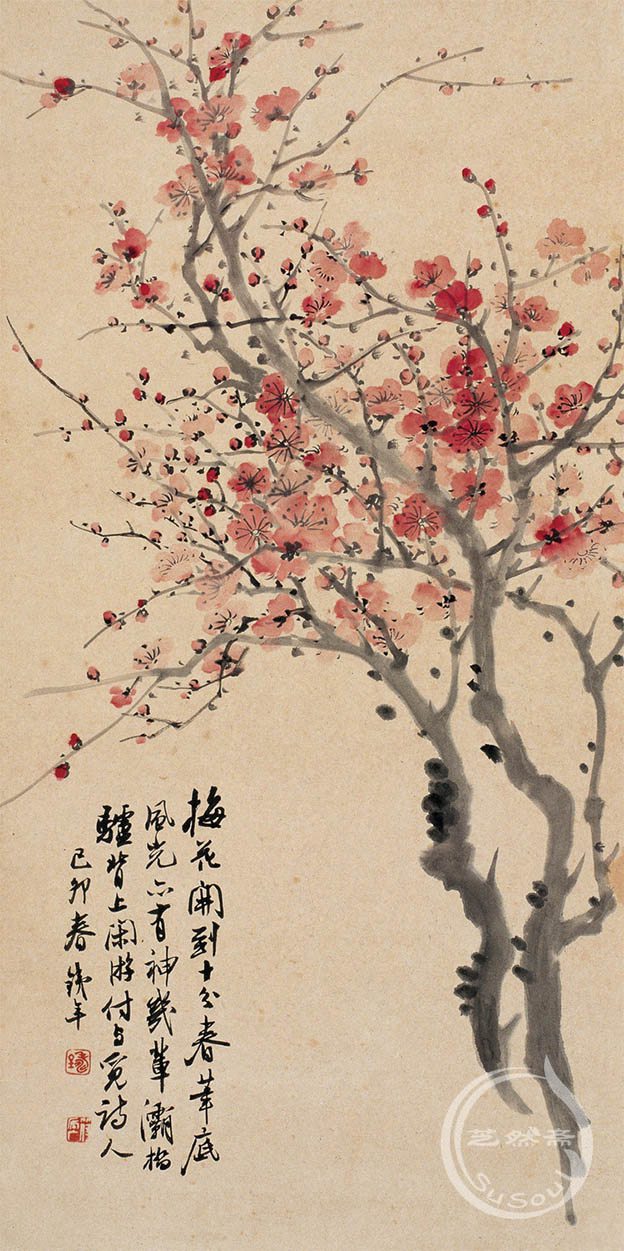 梅花開到十分春筆底
風光亦有神幾輩灞橋
驢背上閑游付与覓詩人
己卯春 鐵年
芝然斋
SuSoul